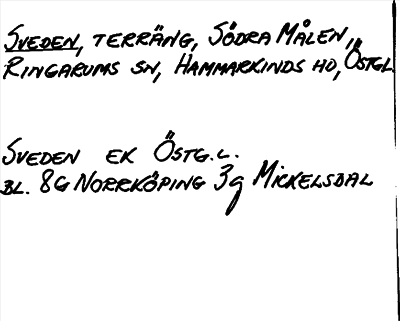 SVEDEN, TERRÄNG, SÖDRA MÅLEN,
RINGARUMS SN, HAMMARKINDS HD, ÖSTGL
SVEDEN EK ÖSTG.L.
BL. 8G NORRKÖPING 3g MICKELSDAL